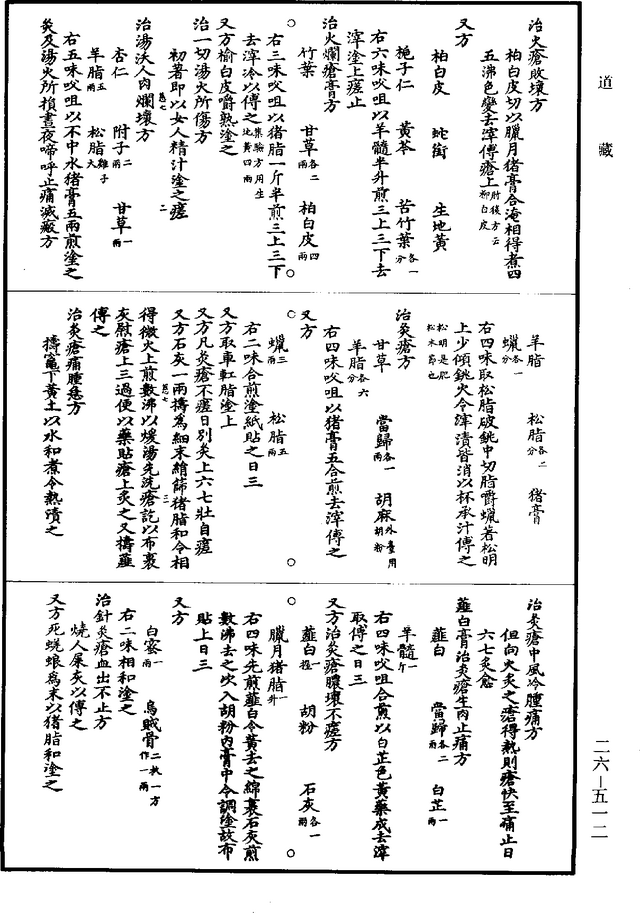 道藏
治火瘡敗壞方
柏白皮切以臘月猪膏合淹相得煮四
五沸色變去滓傅瘡上肘後方云柳白皮
又方
柏白皮 蛇銜 生地黃
梔子仁 黃芩 苦竹葉各一分
右六味㕮咀以羊髓半升煎三上三下去
滓塗上瘥止
治火爛瘡膏方
竹葉 甘草各二兩 柏白皮四兩
右三味㕮咀以猪脂一斤半煎三上三下
去滓冷以傅之集驗方用生地黃四兩
又方榆白皮嚼熟塗之
治一切湯火所傷方
初著即以女人精汁塗之瘥
治湯沃人肉爛壞方
杏仁 附子二兩 甘草一兩
羊脂五兩 松脂雞子大
右五味㕮咀以不中水猪膏五兩煎塗之
灸及湯火所損晝夜啼呼止痛滅瘢方
羊脂 松脂各二分 猪膏
蠟各一分
右四味取松脂破銚中切脂嚼蠟著松明
上少傾銚火令滓漬皆消以杯承汁傅之
松明是肥松木節也
治灸瘡方
甘草 當歸各一兩 胡麻外臺用胡粉
羊脂各六分
右四味㕮咀以猪膏五合煎去滓傅之
又方
蠟三兩 松脂五兩
右二味合煎塗紙貼之日三
又方取車軭脂塗上
又方凡灸瘡不瘥日別灸上六七壯自瘥
又方石灰一兩擣為細末絹篩猪脂和令相
得微火上煎數沸以煖湯先洗瘡訖以布裹
灰熨瘡上三過便以藥貼瘡上灸之又擣薤
傅之
治灸瘡痛腫急方
擣竈下黃土以水和煮令熱漬之
治灸瘡中風冷腫痛方
但向火灸之瘡得熱則瘡快至痛止日
六七灸愈
薤白膏治灸瘡生肉止痛方
薤白 當歸各二兩 白芷一兩
羊髓一斤
右四味㕮咀合煎以白芷色黃藥成去滓
取傅之日三
又方治灸瘡膿壞不瘥方
薤白一握 胡粉 石灰各一兩
臘月猪脂一升
右四味先煎薤白令黃去之綿裹石灰煎
數沸去之次入胡粉內膏中令調塗故布
貼上日三
又方
白蜜一兩 烏賊骨二枚一方作一兩
右二味相和塗之
治針灸瘡血出不止方
燒人屎灰以傅之
又方死蜣蜋為末以猪脂和塗之
二六—五一二